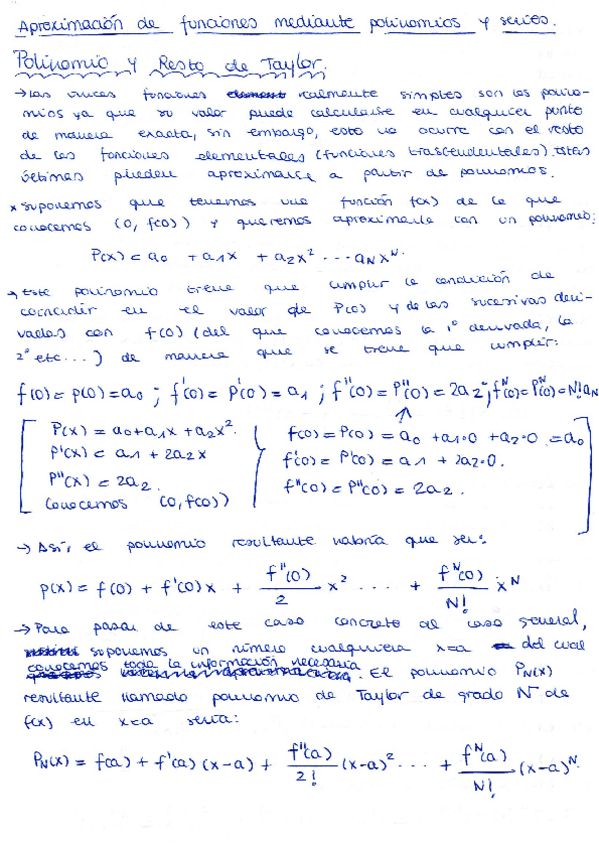 Aproximación de funciones mediante polinomios y series.
Polinomio y Resto de Taylor.
→ Las únicas funciones realmente simples son los polino-
mios ya que su valor puede calcularse en cualquier punto
de manera exacta, sin embargo, esto no ocurre con el resto
de las funciones elementales (funciones trascendentales). Estas
últimas pueden aproximarse a partir de polinomios.
* Suponemos que tenemos una función f(x) de la que
conocemos (0, f(0)) y queremos aproximarla con un polinomio:
P(x) = a₀ + a₁x + a₂x² ... aₙxᴺ
→ Este polinomio tiene que cumplir la condición de
coincidir en el valor de P(0) y de las sucesivas deri-
vadas con f(0) (del que conocemos la 1º derivada, la
2º etc...) de manera que se tiene que cumplir:
f(0) = p(0) = a₀ ; f'(0) = P'(0) = a₁ ; f''(0) = P''(0) = 2a₂ ; fᴺ(0) = Pᴺ(0) = N! aₙ
P(x) = a₀ + a₁x + a₂x². f(0) = P(0) = a₀ + a₁·0 + a₂·0 = a₀
P'(x) = a₁ + 2a₂x f'(0) = P'(0) = a₁ + 2a₂·0.
P''(x) = 2a₂. f''(0) = P''(0) = 2a₂.
Conocemos (0, f(0))
→ Así, el polinomio resultante habría que ser:
p(x) = f(0) + f'(0)x + f''(0)/2 x² ... + fᴺ(0)/N! xᴺ
→ Para pasar de este caso concreto al caso general,
suponemos un número cualquiera x=a del cual
conocemos toda la información necesaria. El polinomio Pₙ(x)
resultante llamado polinomio de Taylor de grado N de
f(x) en x=a sería:
Pₙ(x) = f(a) + f'(a) (x-a) + f''(a)/2! (x-a)² ... + fᴺ(a)/N! (x-a)ᴺ.